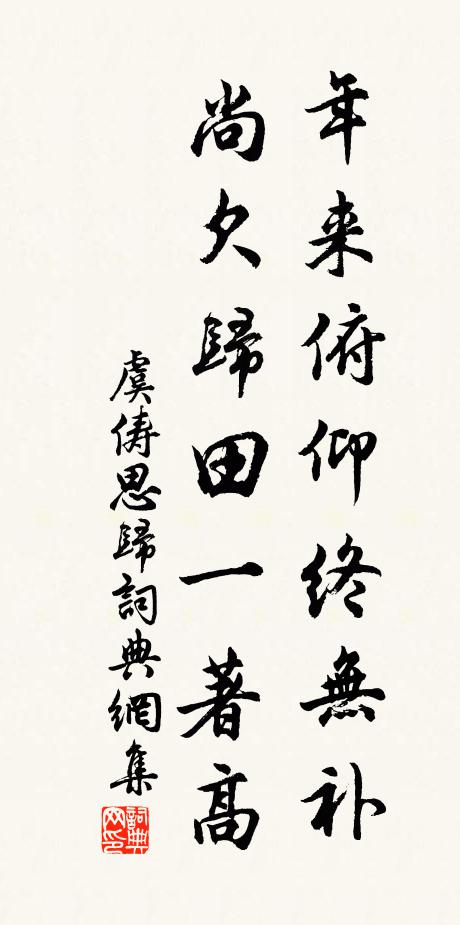 年来俯仰終無补
尚欠歸田一著高
虞儔思歸詞典網集
詞典网印